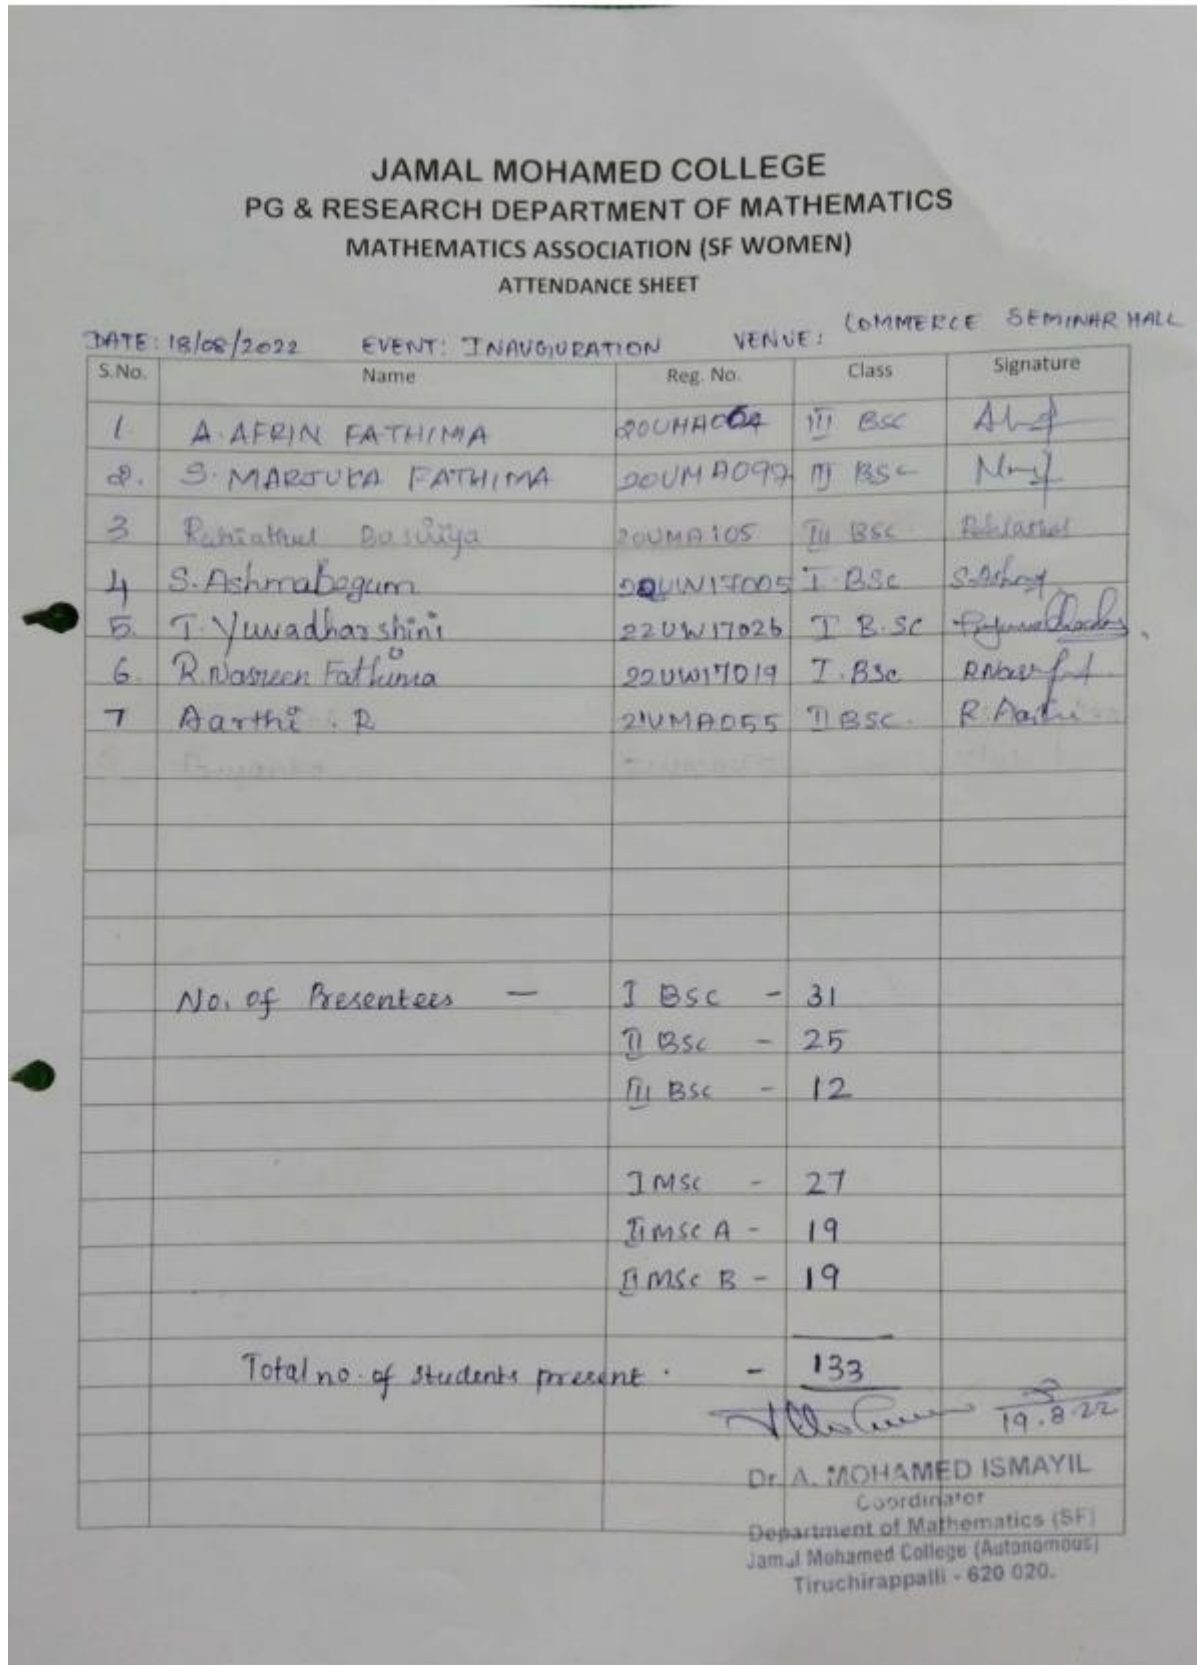 JAMAL MOHAMED COLLEGE
PG & RESEARCH DEPARTMENT OF MATHEMATICS
MATHEMATICS ASSOCIATION (SF WOMEN)
ATTENDANCE SHEET
DATE: 18/08/2022 EVENT: INAUGURATION VENUE: COMMERCE SEMINAR HALL
S.No. Name Reg. No. Class Signature
1. A. AFRIN FATHIMA III BSC
2. S. MARJUKA FATHIMA 20UMA097 III BSC
3 Rahiathul 20UMA105 III BSC.
4 S. Ashmabegum 22UW17005 I. BSc S. Ashma
5. T. Yuvadharshini 22UW17026 I B.SC
6. R. Nasreen Fathima 22UW17019 I. BSc
7 Aarthi . R 21UMA055 II BSC. R. Aarthi
Priyanka
No. of Presentees — I BSC - 31
II BSC - 25
III BSC - 12
I MSC - 27
II MSC A - 19
II MSC B - 19
Total no. of students present . - 133
19.8.22
Dr. A. MOHAMED ISMAYIL
Coordinator
Department of Mathematics (SF)
Jamal Mohamed College (Autonomous)
Tiruchirappalli - 620 020.